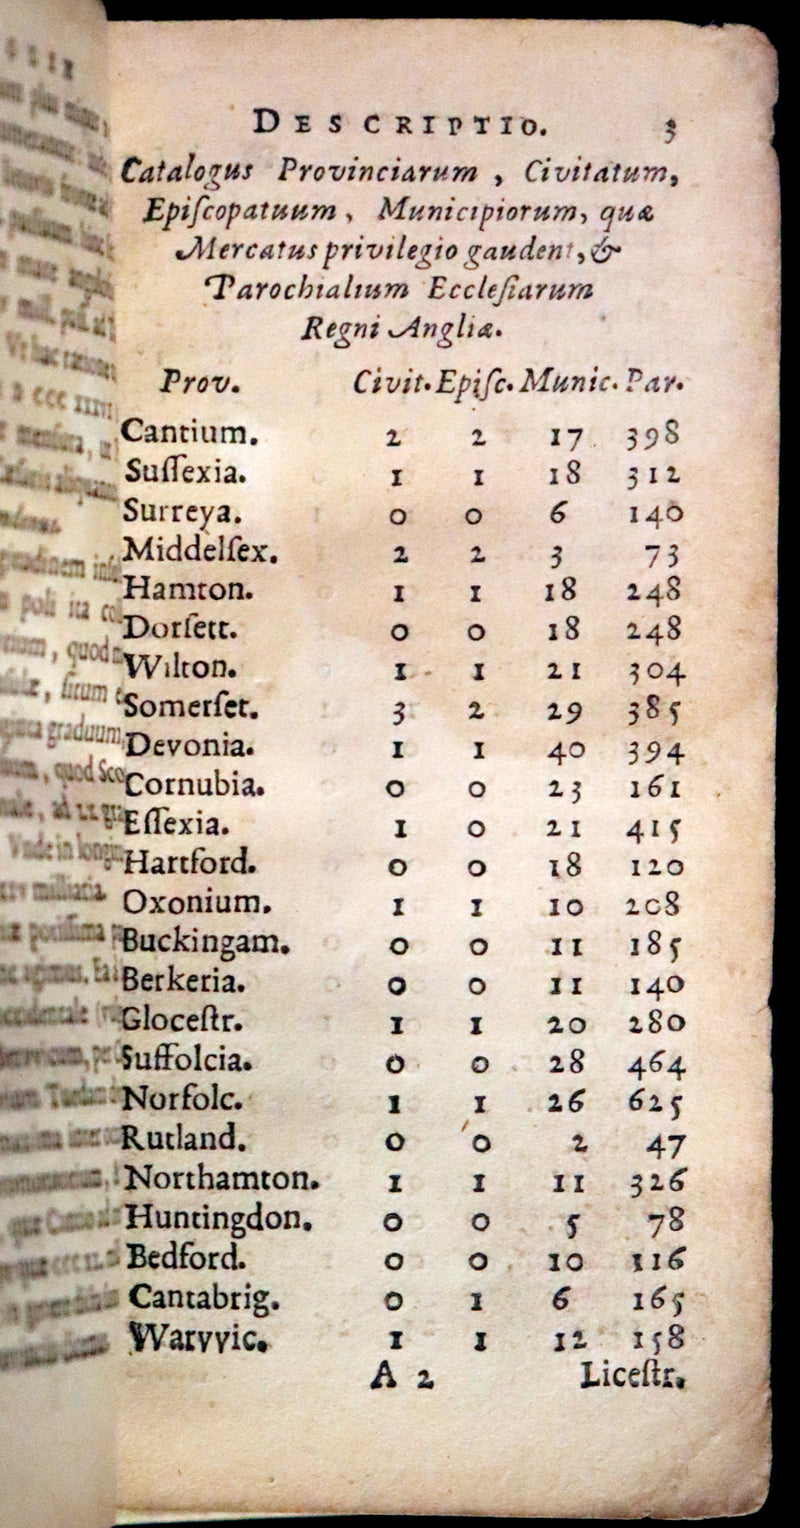 DESCRIPTIO. 3
Catalogus Provinciarum, Civitatum,
Epiſcopatuum, Municipiorum, quæ
Mercatus privilegio gaudent, &
Parochialium Eccleſiarum
Regni Angliæ.
Prov. Civit. Epiſc. Munic. Par.
Cantium. 2 2 17 398
Suſſexia. 1 1 18 312
Surreya. 0 0 6 140
Middelſex. 2 2 3 73
Hamton. 1 1 18 248
Dorſett. 0 0 18 248
Wilton. 1 1 21 304
Somerſet. 3 2 29 385
Devonia. 1 1 40 394
Cornubia. 0 0 23 161
Eſſexia. 1 0 21 415
Hartford. 0 0 18 120
Oxonium. 1 1 10 208
Buckingam. 0 0 11 185
Berkeria. 0 0 11 140
Gloceſtr. 1 1 20 280
Suffolcia. 0 0 28 464
Norfolc. 1 1 26 625
Rutland. 0 0 2 47
Northamton. 1 1 11 326
Huntingdon. 0 0 5 78
Bedford. 0 0 10 116
Cantabrig. 0 1 6 165
Warvvic. 1 1 12 158
A 2 Liceſtr.